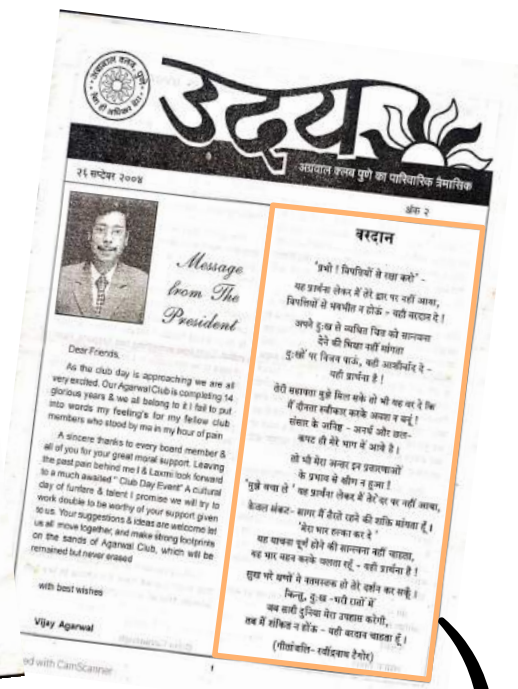 अग्रवाल क्लब, पुणे
उदय
अग्रवाल क्लब पुणे का पारिवारिक त्रैमासिक
२६ सप्टेंबर २००४
अंक २
Message
from The
President
Dear Friends,
As the club day is approaching we are all
very excited. Our Agarwal Club is completing 14
glorious years & we all belong to it I fail to put
into words my feeling's for my fellow club
members who stood by me in my hour of pain
A sincere thanks to every board member &
all of you for your great moral support. Leaving
the past pain behind me I & Laxmi look forward
to a much awaited " Club Day Event" A cultural
day of funfare & talent I promise we will try to
work double to be worthy of your support given
to us. Your suggestions & ideas are welcome let
us all move together, and make strong footprints
on the sands of Agarwal Club, which will be
remained but never erased
with best wishes
Vijay Agarwal
वरदान
'प्रभो ! विपत्तियों से रक्षा करो' -
यह प्रार्थना लेकर मैं तेरे द्वार पर नहीं आया,
विपत्तियों से भयभीत न होऊं - यही वरदान दे !
अपने दुःख से व्यथित चित्त को सान्त्वना
देने की भिक्षा नहीं मांगता
दुःखों पर विजय पाऊं, यही आशीर्वाद दे -
यही प्रार्थना है !
तेरी सहायता मुझे मिल सके तो भी यह वर दे कि
मैं दीनता स्वीकार करके अवश न बनूं !
संसार के अनिष्ट - अनर्थ और छल-
कपट ही मेरे भाग में आये है।
तो भी मेरा अन्तर इन प्रतारणाओं
के प्रभाव से क्षीण न हुआ !
'मुझे बचा ले ' यह प्रार्थना लेकर मैं तेरे दर पर नहीं आया,
केवल संकट- सागर में तैरते रहने की शक्ति मांगता हूँ।
'मेरा भार हल्का कर दे '
यह याचना पूर्ण होने की सान्त्वना नहीं चाहता,
यह भार वहन करके चलता रहूँ - यही प्रार्थना है !
सुख भरे क्षणों में नतमस्तक हो तेरे दर्शन कर सकूँ।
किन्तु, दुःख -भरी रातों में
जब सारी दुनिया मेरा उपहास करेगी,
तब मैं शंकित न होऊं - यही वरदान चाहता हूँ।
(गीतांजलि- रवींद्रनाथ टैगोर)
1
ed with CamScanner